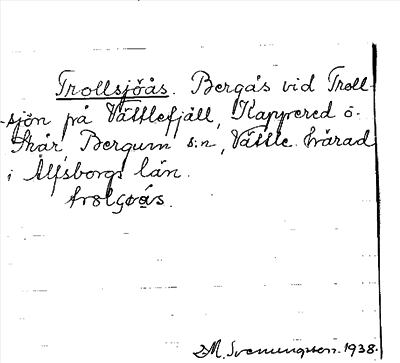 Trollsjöås. Bergås vid Troll-
sjön på Vättlefjäll, Kappered o.
Skår Bergum s:n, Vättle härad
i Älfsborgs län.
M. Svenungsson. 1938.